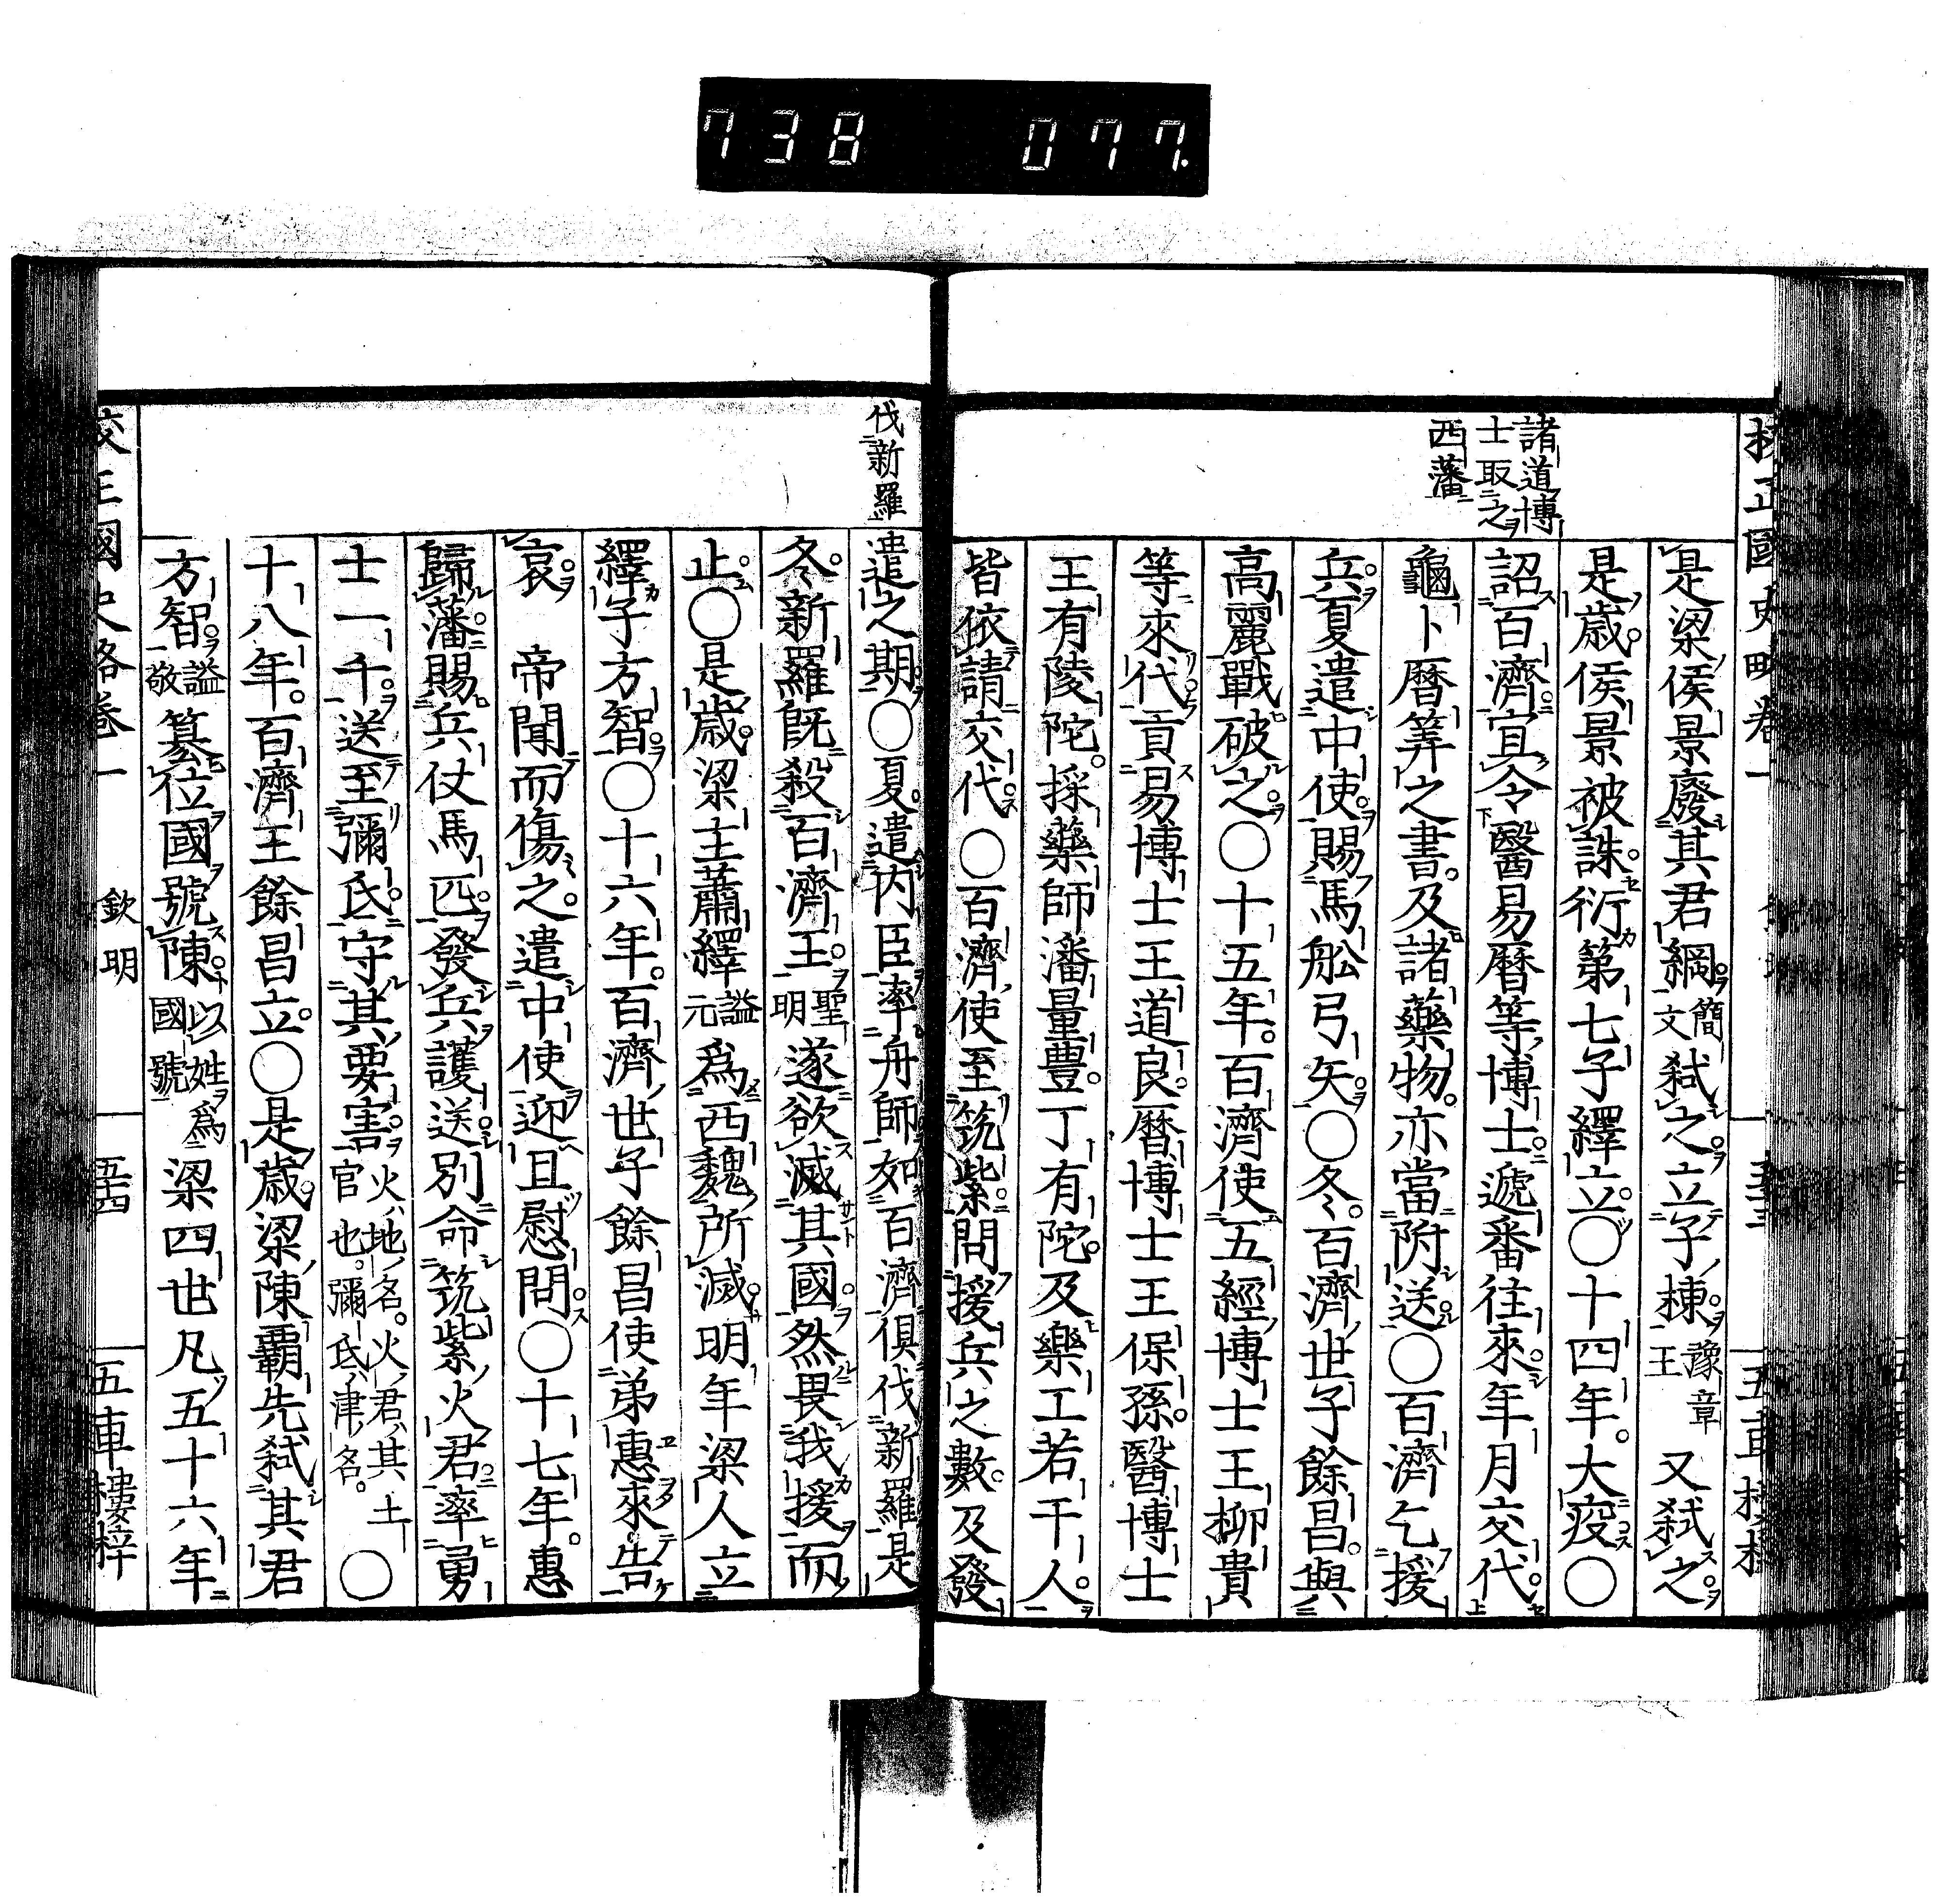 738 077.
諸道博
士取之
西藩
是梁侯景廢其君綱簡文弑之立子棟豫章王又弑之
是歲侯景被誅衍第七子繹立○十四年大疫○
詔百濟宜令醫易曆等博士遞番往來年月交代
龜卜曆筭之書及諸藥物亦當附送○百濟乞援
兵夏遣中使賜馬舩弓矢○冬百濟世子餘昌與
高麗戰破之○十五年百濟使五經博士王柳貴
等來代貢易博士王道良曆博士王保孫醫博士
王有陵陀採藥師潘量豊丁有陀及樂工若干人
皆依請交代○百濟使至筑紫問援兵之數及發
伐新羅
遣之期○夏遣内臣率舟師如百濟俱伐新羅是
冬新羅旣殺百濟王聖明遂欲滅其國然畏我援而
止○是歲梁主蕭繹謚元爲西魏所滅明年梁人立
繹子方智○十六年百濟世子餘昌使弟惠來告
哀　帝聞而傷之遣中使迎且慰問○十七年惠
歸藩賜兵仗馬匹發兵護送別命筑紫火君率勇
士一千送至彌氐守其要害火地名火君其土官也彌氐津名○
十八年百濟王餘昌立○是歲梁陳霸先弑其君
方智謚敬簒位國號陳以姓爲國號梁四世凡五十六年
欽明
五十四
五車樓梓